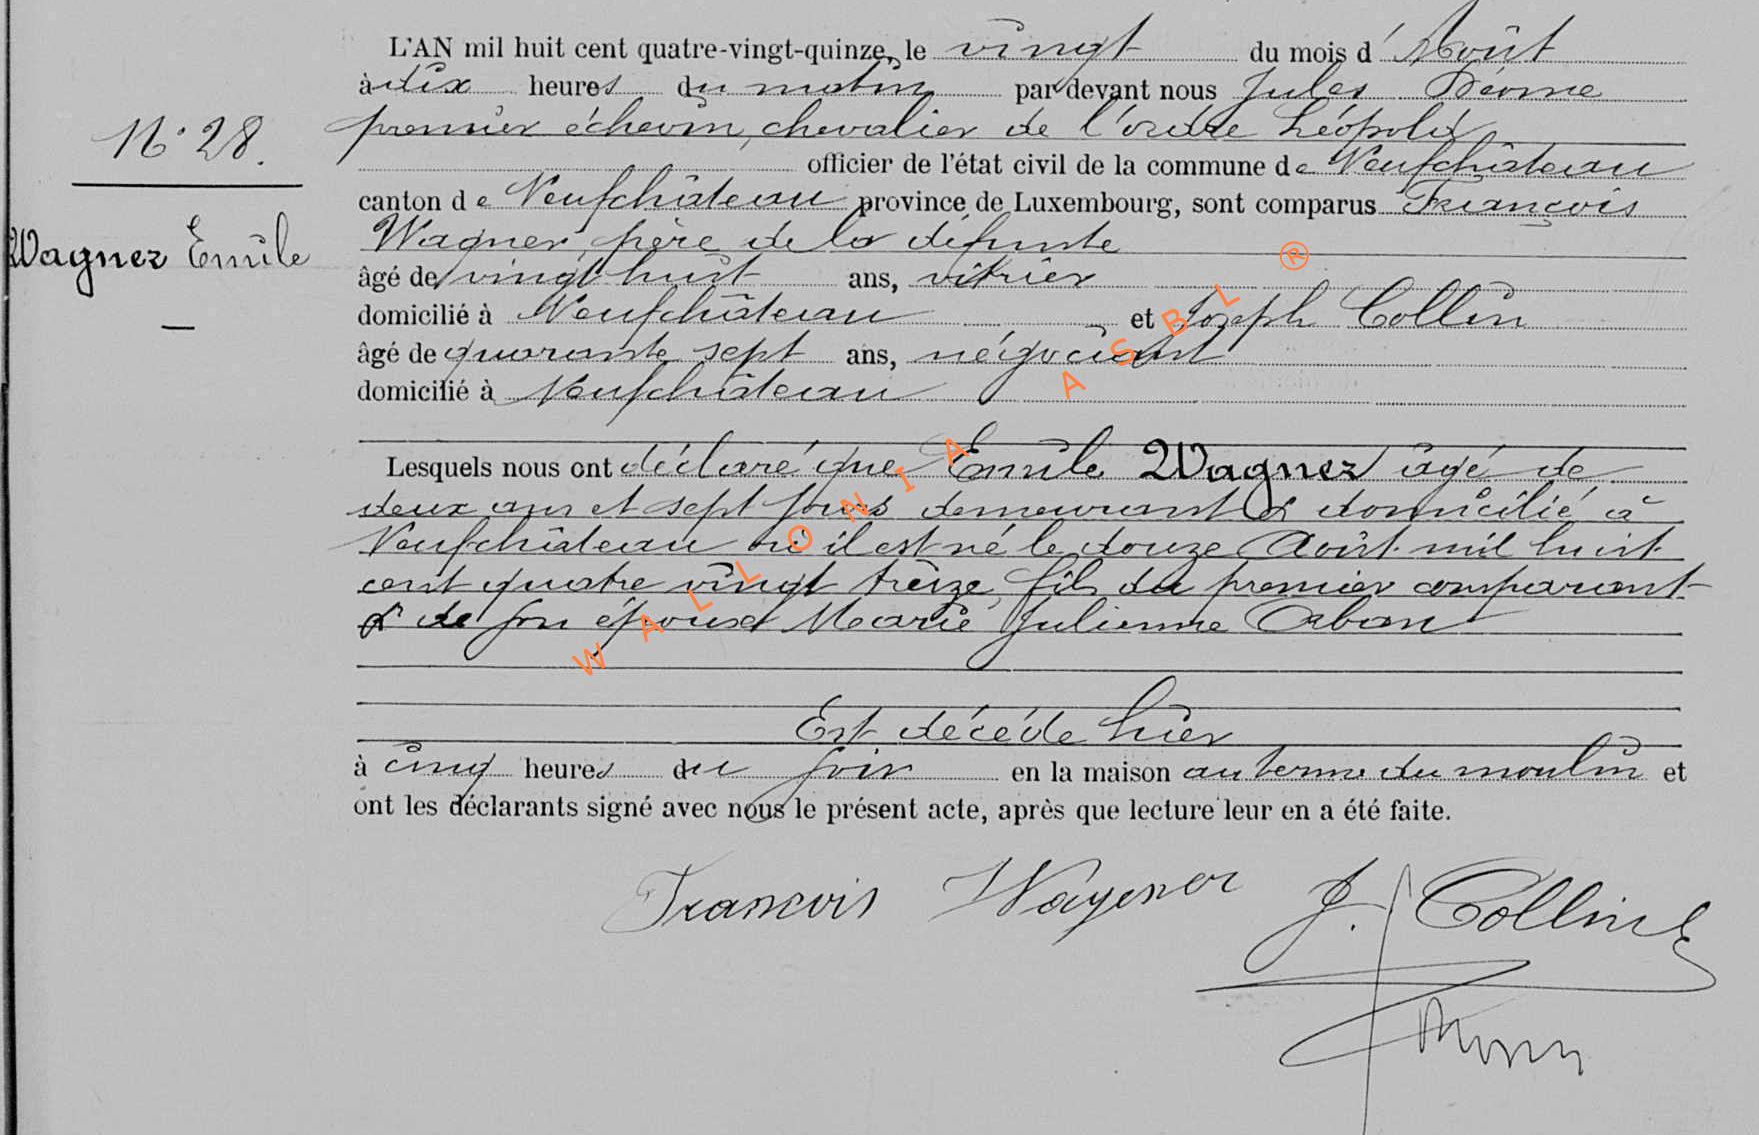 L'AN mil huit cent quatre-vingt-quinze, le vingt du mois d'Août
à dix heures du matin par devant nous Jules
N° 28. premier échevin, chevalier de l'ordre Léopold
officier de l'état civil de la commune de Neufchâteau
canton de Neufchâteau province de Luxembourg, sont comparus François
Wagner père de la défunte
Wagner Emile
âgé de vingt huit ans, vitrier
domicilié à Neufchâteau et Joseph Collin
âgé de quarante sept ans, négociant
domicilié à Neufchâteau
Lesquels nous ont déclaré que Emile Wagner âgé de
deux ans et sept jours demeurant & domicilié à
Neufchâteau où il est né le douze Août mil huit
cent quatre vingt treize, fils du premier comparant
& de son épouse Marie Julienne Orban
Est décédé hier
à cinq heures du soir en la maison au terme du moulin et
ont les déclarants signé avec nous le présent acte, après que lecture leur en a été faite.
François Wagener J. Collin
WALLONIA ASBL ®